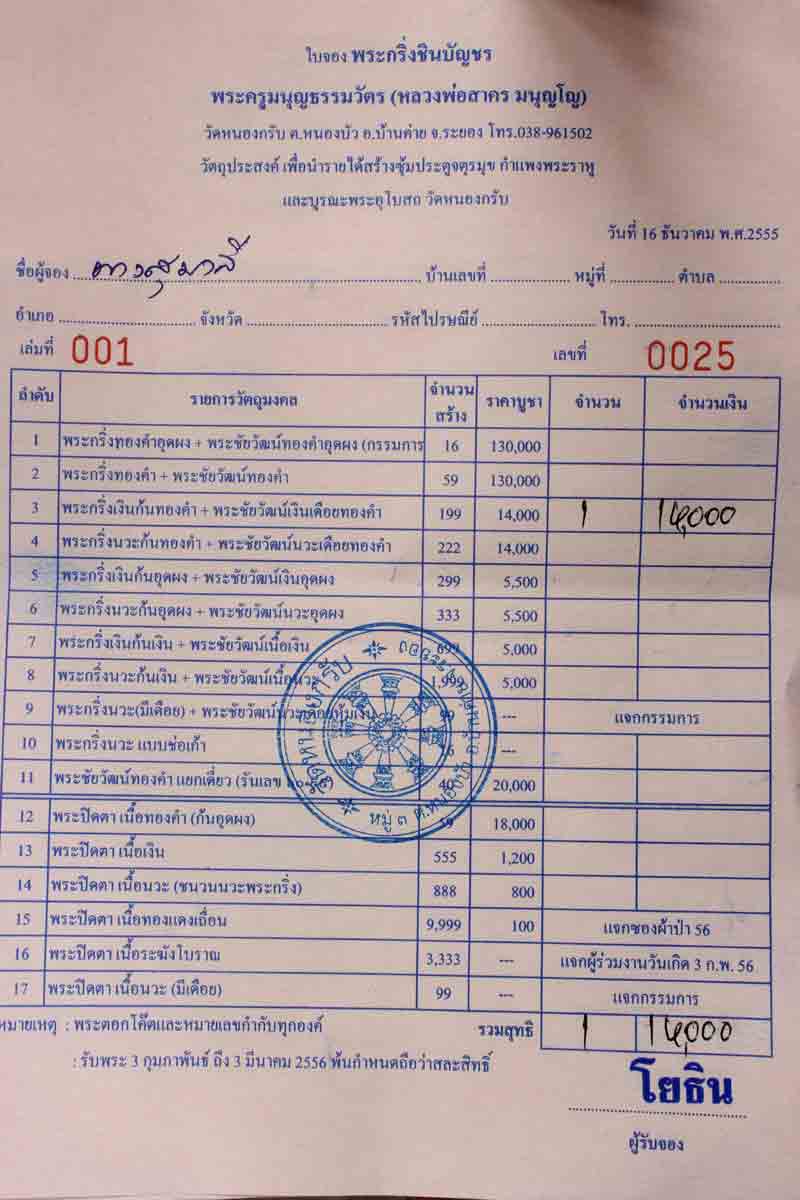 ใบจอง พระกริ่งชินบัญชร
พระครูมนุญธรรมวัตร (หลวงพ่อสาคร มนุญโญ)
วัดหนองกรับ ต.หนองบัว อ.บ้านค่าย จ.ระยอง โทร.038-961502
วัตถุประสงค์ เพื่อนำรายได้สร้างซุ้มประตูจตุรมุข กำแพงพระราหู
และบูรณะพระอุโบสถ วัดหนองกรับ
วันที่ 16 ธันวาคม พ.ศ.2555
ชื่อผู้จอง บ้านเลขที่ หมู่ที่ ตำบล
อำเภอ จังหวัด รหัสไปรษณีย์ โทร.
เล่มที่ 001 เลขที่ 0025
ลำดับ รายการวัตถุมงคล จำนวนสร้าง ราคาบูชา จำนวน จำนวนเงิน
1 พระกริ่งทองคำอุดผง + พระชัยวัฒน์ทองคำอุดผง (กรรมการ 16 130,000
2 พระกริ่งทองคำ + พระชัยวัฒน์ทองคำ 59 130,000
3 พระกริ่งเงินก้นทองคำ + พระชัยวัฒน์เงินเดือยทองคำ 199 14,000 1 14,000
4 พระกริ่งนวะก้นทองคำ + พระชัยวัฒน์นวะเดือยทองคำ 222 14,000
5 พระกริ่งเงินก้นอุดผง + พระชัยวัฒน์เงินอุดผง 299 5,500
6 พระกริ่งนวะก้นอุดผง + พระชัยวัฒน์นวะอุดผง 333 5,500
7 พระกริ่งเงินก้นเงิน + พระชัยวัฒน์เนื้อเงิน 699 5,000
8 พระกริ่งนวะก้นเงิน + พระชัยวัฒน์เนื้อนวะ 1,999 5,000
9 พระกริ่งนวะ(มีเดือย) + พระชัยวัฒน์นวะเดือยหุ้มเงิน 99 --- แจกกรรมการ
10 พระกริ่งนวะ แบบช่อเก้า ---
11 พระชัยวัฒน์ทองคำ แยกเดี่ยว (รันเลข 40 20,000
12 พระปิดตา เนื้อทองคำ (ก้นอุดผง) 18,000
13 พระปิดตา เนื้อเงิน 555 1,200
14 พระปิดตา เนื้อนวะ (ชนวนนวะพระกริ่ง) 888 800
15 พระปิดตา เนื้อทองแดงเถื่อน 9,999 100 แจกซองผ้าป่า 56
16 พระปิดตา เนื้อระฆังโบราณ 3,333 --- แจกผู้ร่วมงานวันเกิด 3 ก.พ. 56
17 พระปิดตา เนื้อนวะ (มีเดือย) 99 --- แจกกรรมการ
หมายเหตุ : พระตอกโค๊ตและหมายเลขกำกับทุกองค์ รวมสุทธิ 1 14,000
: รับพระ 3 กุมภาพันธ์ ถึง 3 มีนาคม 2556 พ้นกำหนดถือว่าสละสิทธิ์
โยธิน
ผู้รับจอง
วัดหนองกรับ
หมู่ ๓ ต.หนองบัว อ.บ้านค่าย จ.ระยอง